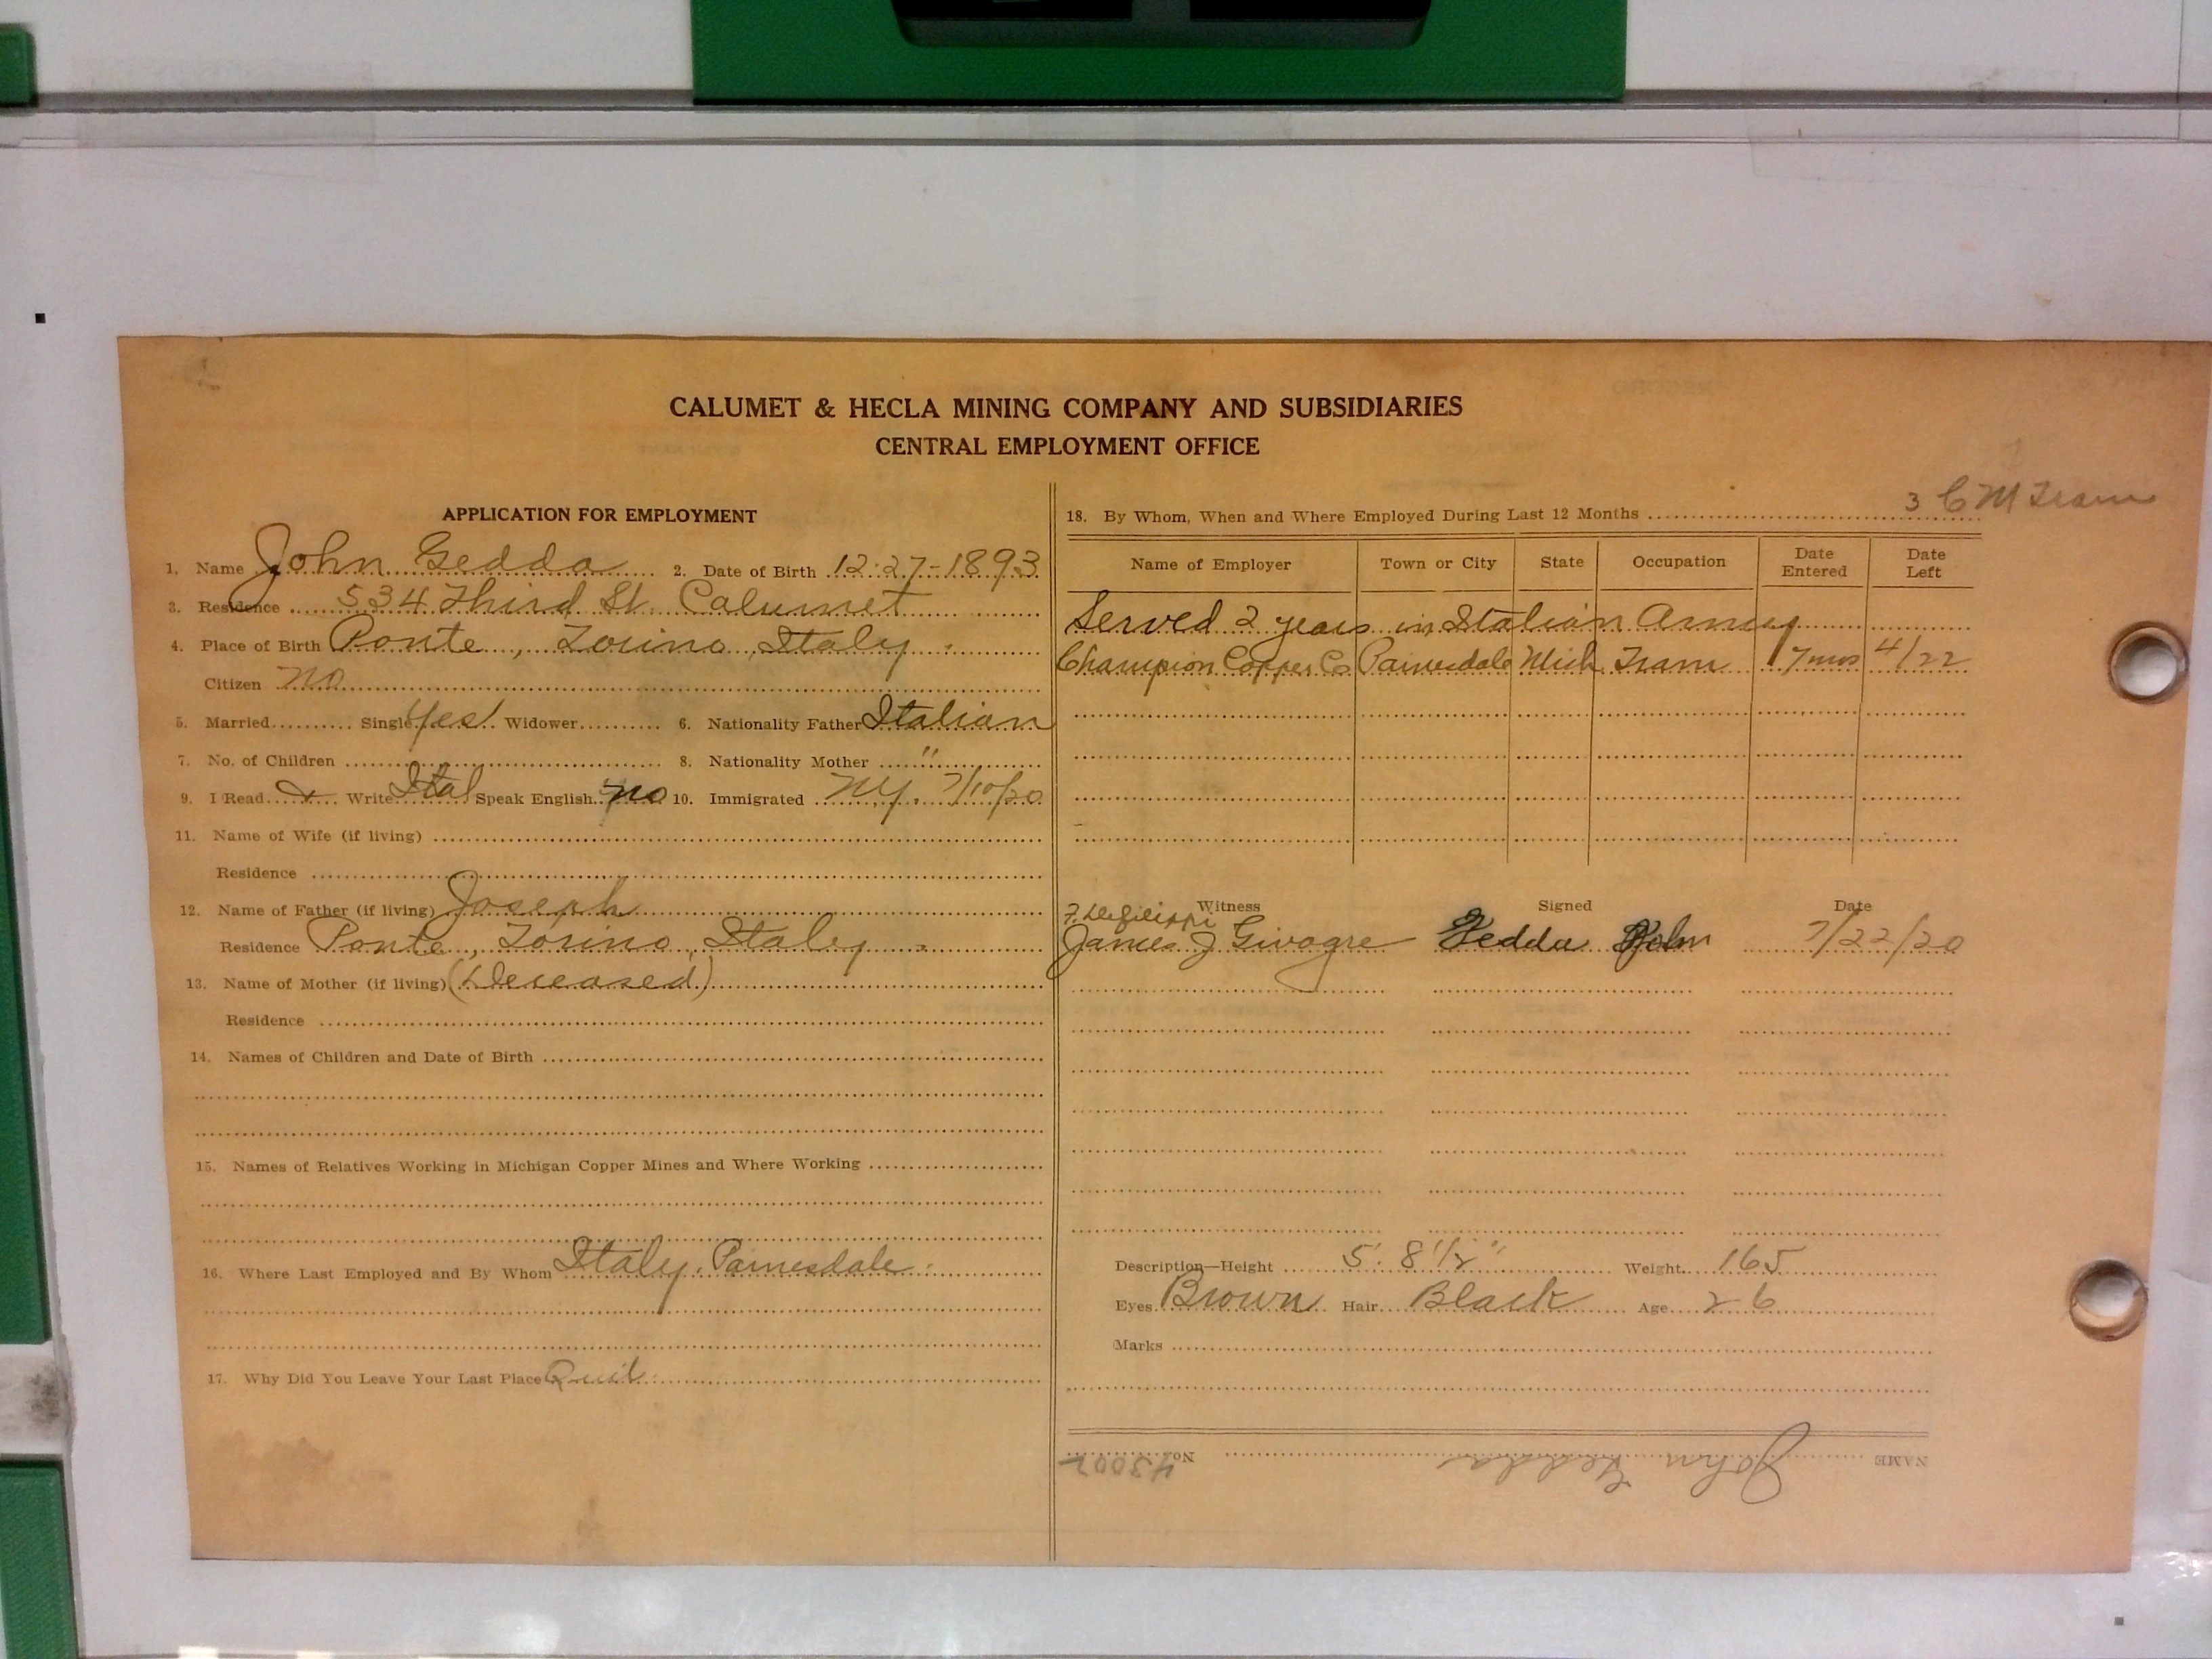 CALUMET & HECLA MINING COMPANY AND SUBSIDIARIES
CENTRAL EMPLOYMENT OFFICE
APPLICATION FOR EMPLOYMENT
1. Name John Gedda 2. Date of Birth 12-27-1893
3. Residence 534 Third St. Calumet
4. Place of Birth Ponte, Torino, Italy
Citizen no
5. Married Single Yes Widower 6. Nationality Father Italian
7. No. of Children 8. Nationality Mother "
9. I Read & Write Ital Speak English no 10. Immigrated NY. 7/10/20
11. Name of Wife (if living)
Residence
12. Name of Father (if living) Joseph
Residence Ponte, Torino, Italy
13. Name of Mother (if living) (Deceased)
Residence
14. Names of Children and Date of Birth
15. Names of Relatives Working in Michigan Copper Mines and Where Working
16. Where Last Employed and By Whom Italy. Painesdale
17. Why Did You Leave Your Last Place Quit
3 C M Tram
18. By Whom, When and Where Employed During Last 12 Months
Name of Employer Town or City State Occupation Date Entered Date Left
Served 2 years in Italian Army
Champion Copper Co Painesdale Mich. Tram 7 mos 4/22
Witness Signed Date
James J Givogre Gedda John 7/22/20
Description—Height 5' 8 1/2" Weight 165
Eyes Brown Hair Black Age 26
Marks
NAME John Gedda No. 43002